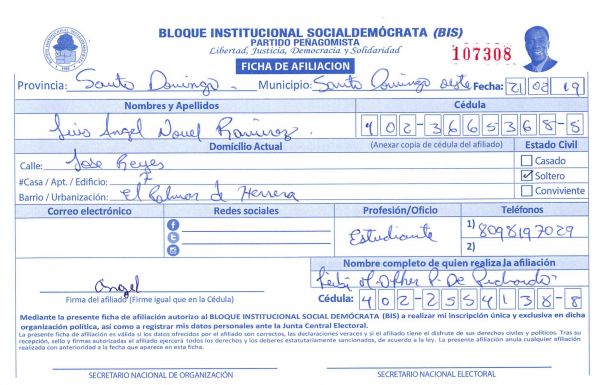 BLOQUE INSTITUCIONAL SOCIALDEMÓCRATA (BIS)
PARTIDO PEÑAGOMISTA
Libertad, Justicia, Democracia y Solidaridad
107308
FICHA DE AFILIACION
Provincia: Santo Domingo. Municipio: Santo Domingo oeste Fecha: 21 02 19
Nombres y Apellidos Cédula
Luis Angel Nouel Ramirez. 402-3665368-8
Domicilio Actual (Anexar copia de cédula del afiliado) Estado Civil
Calle: Jose Reyes Casado
#Casa / Apt. / Edificio: 7 Soltero
Barrio / Urbanización: El Palmar de Herrera Conviviente
Correo electrónico Redes sociales Profesión/Oficio Teléfonos
Estudiante 1) 8098197029
2)
Nombre completo de quien realiza la afiliación
Angel P. De
Firma del afiliado (Firme igual que en la Cédula) Cédula: 402-2554138-8
Mediante la presente ficha de afiliación autorizo al BLOQUE INSTITUCIONAL SOCIAL DEMÓCRATA (BIS) a realizar mi inscripción única y exclusiva en dicha
organización política, así como a registrar mis datos personales ante la Junta Central Electoral.
La presente ficha de afiliación es válida si los datos ofrecidos por el afiliado son correctos, las declaraciones veraces y si el afiliado tiene el disfrute de sus derechos civiles y políticos. Tras su
recepción, sello y firmas autorizadas el afiliado ejercerá todos los derechos y los deberes estatutariamente sancionados, de acuerdo a la ley. La presente afiliación anula cualquier afiliación
realizada con anterioridad a la fecha que aparece en esta ficha.
SECRETARIO NACIONAL DE ORGANIZACIÓN SECRETARIO NACIONAL ELECTORAL